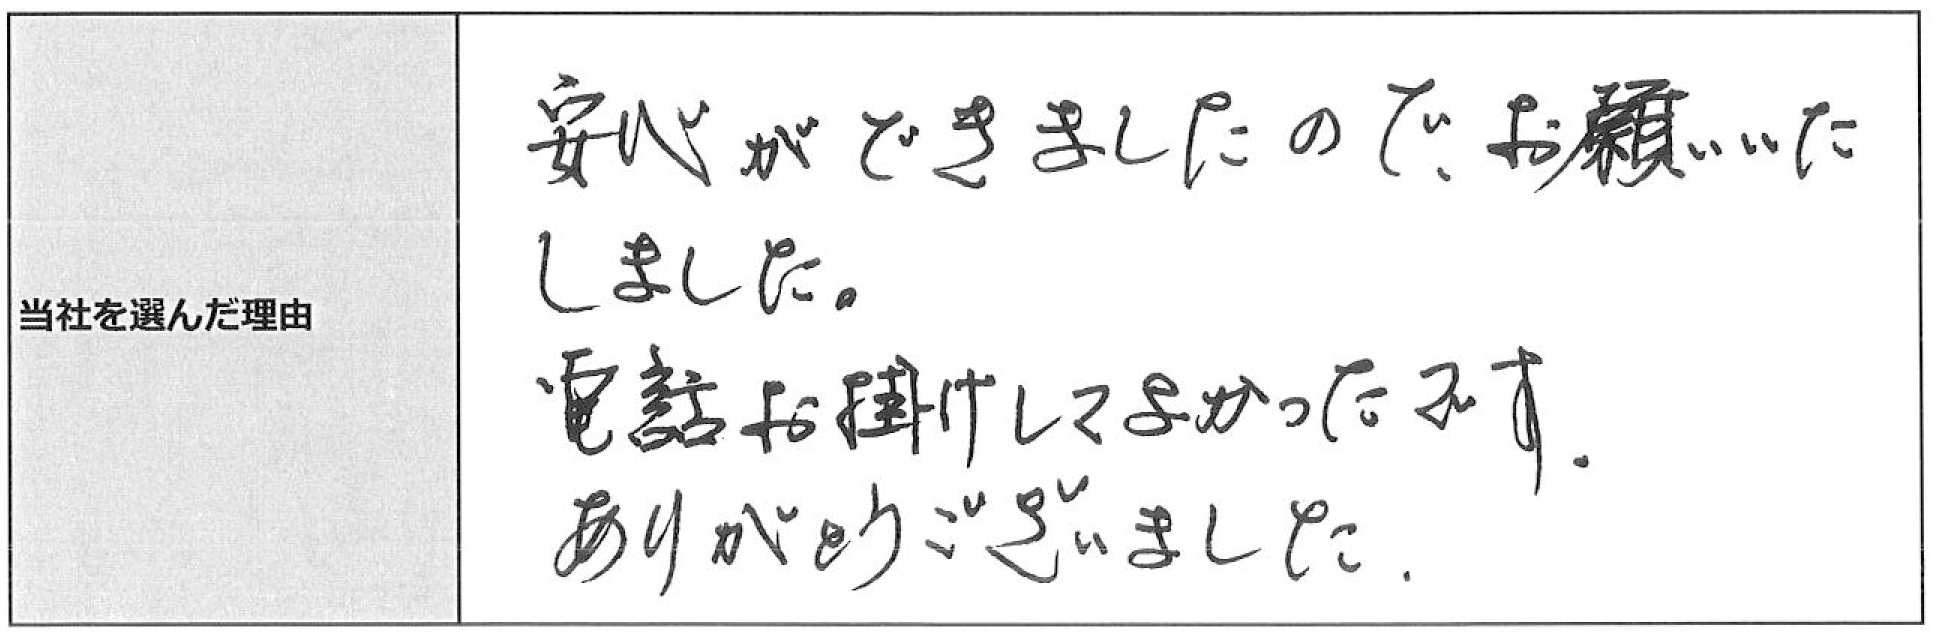 当社を選んだ理由
安心ができましたので、お願いいた
しました。
電話お掛けしてよかったです.
ありがとうございました.